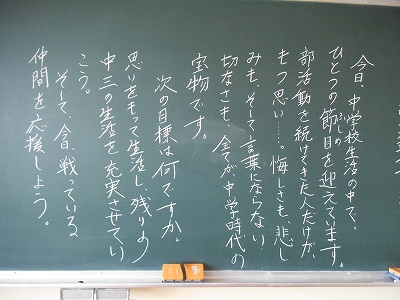 今日、中学校生活の中で、
ひとつの節目を迎えています。
部活動を続けてきた人だけが、
もつ思い……。悔しさも、悲し
みも、そして言葉にならない
切なさも、全てが中学時代の
宝物です。
次の目標は何ですか。
思いをもって生活し、残りの
中三の生活を充実させてい
こう。
そして、今日、戦っている
仲間を応援しよう。